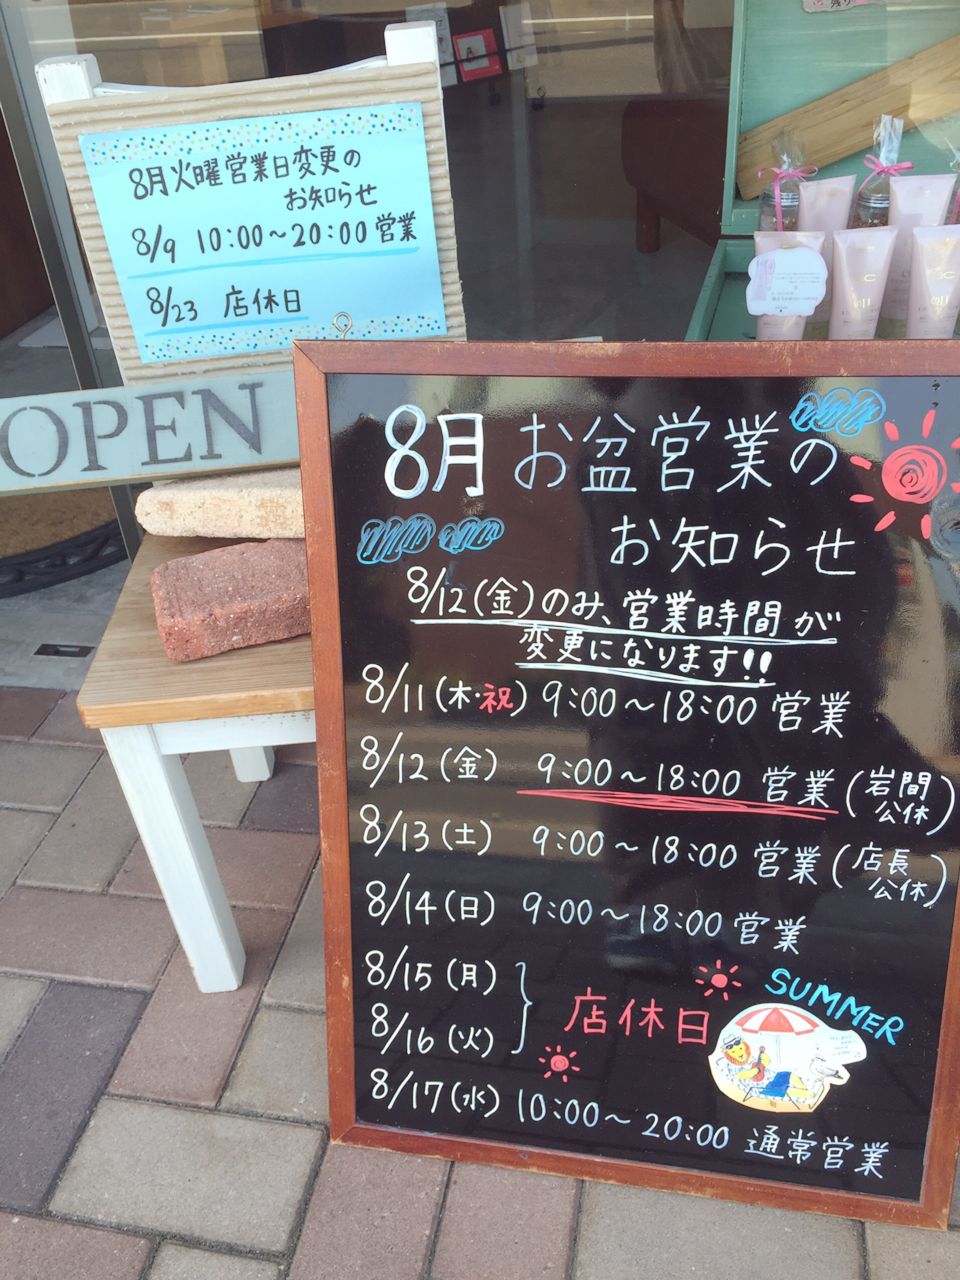 8月火曜営業日変更の
お知らせ
8/9 10:00～20:00 営業
8/23 店休日
OPEN
8月お盆営業の
お知らせ
8/12(金)のみ、営業時間が
変更になります!!
8/11(木・祝) 9:00～18:00 営業
8/12(金) 9:00～18:00 営業(岩間公休)
8/13(土) 9:00～18:00 営業(店長公休)
8/14(日) 9:00～18:00 営業
8/15(月)
8/16(火)
店休日
SUMMER
8/17(水) 10:00～20:00 通常営業